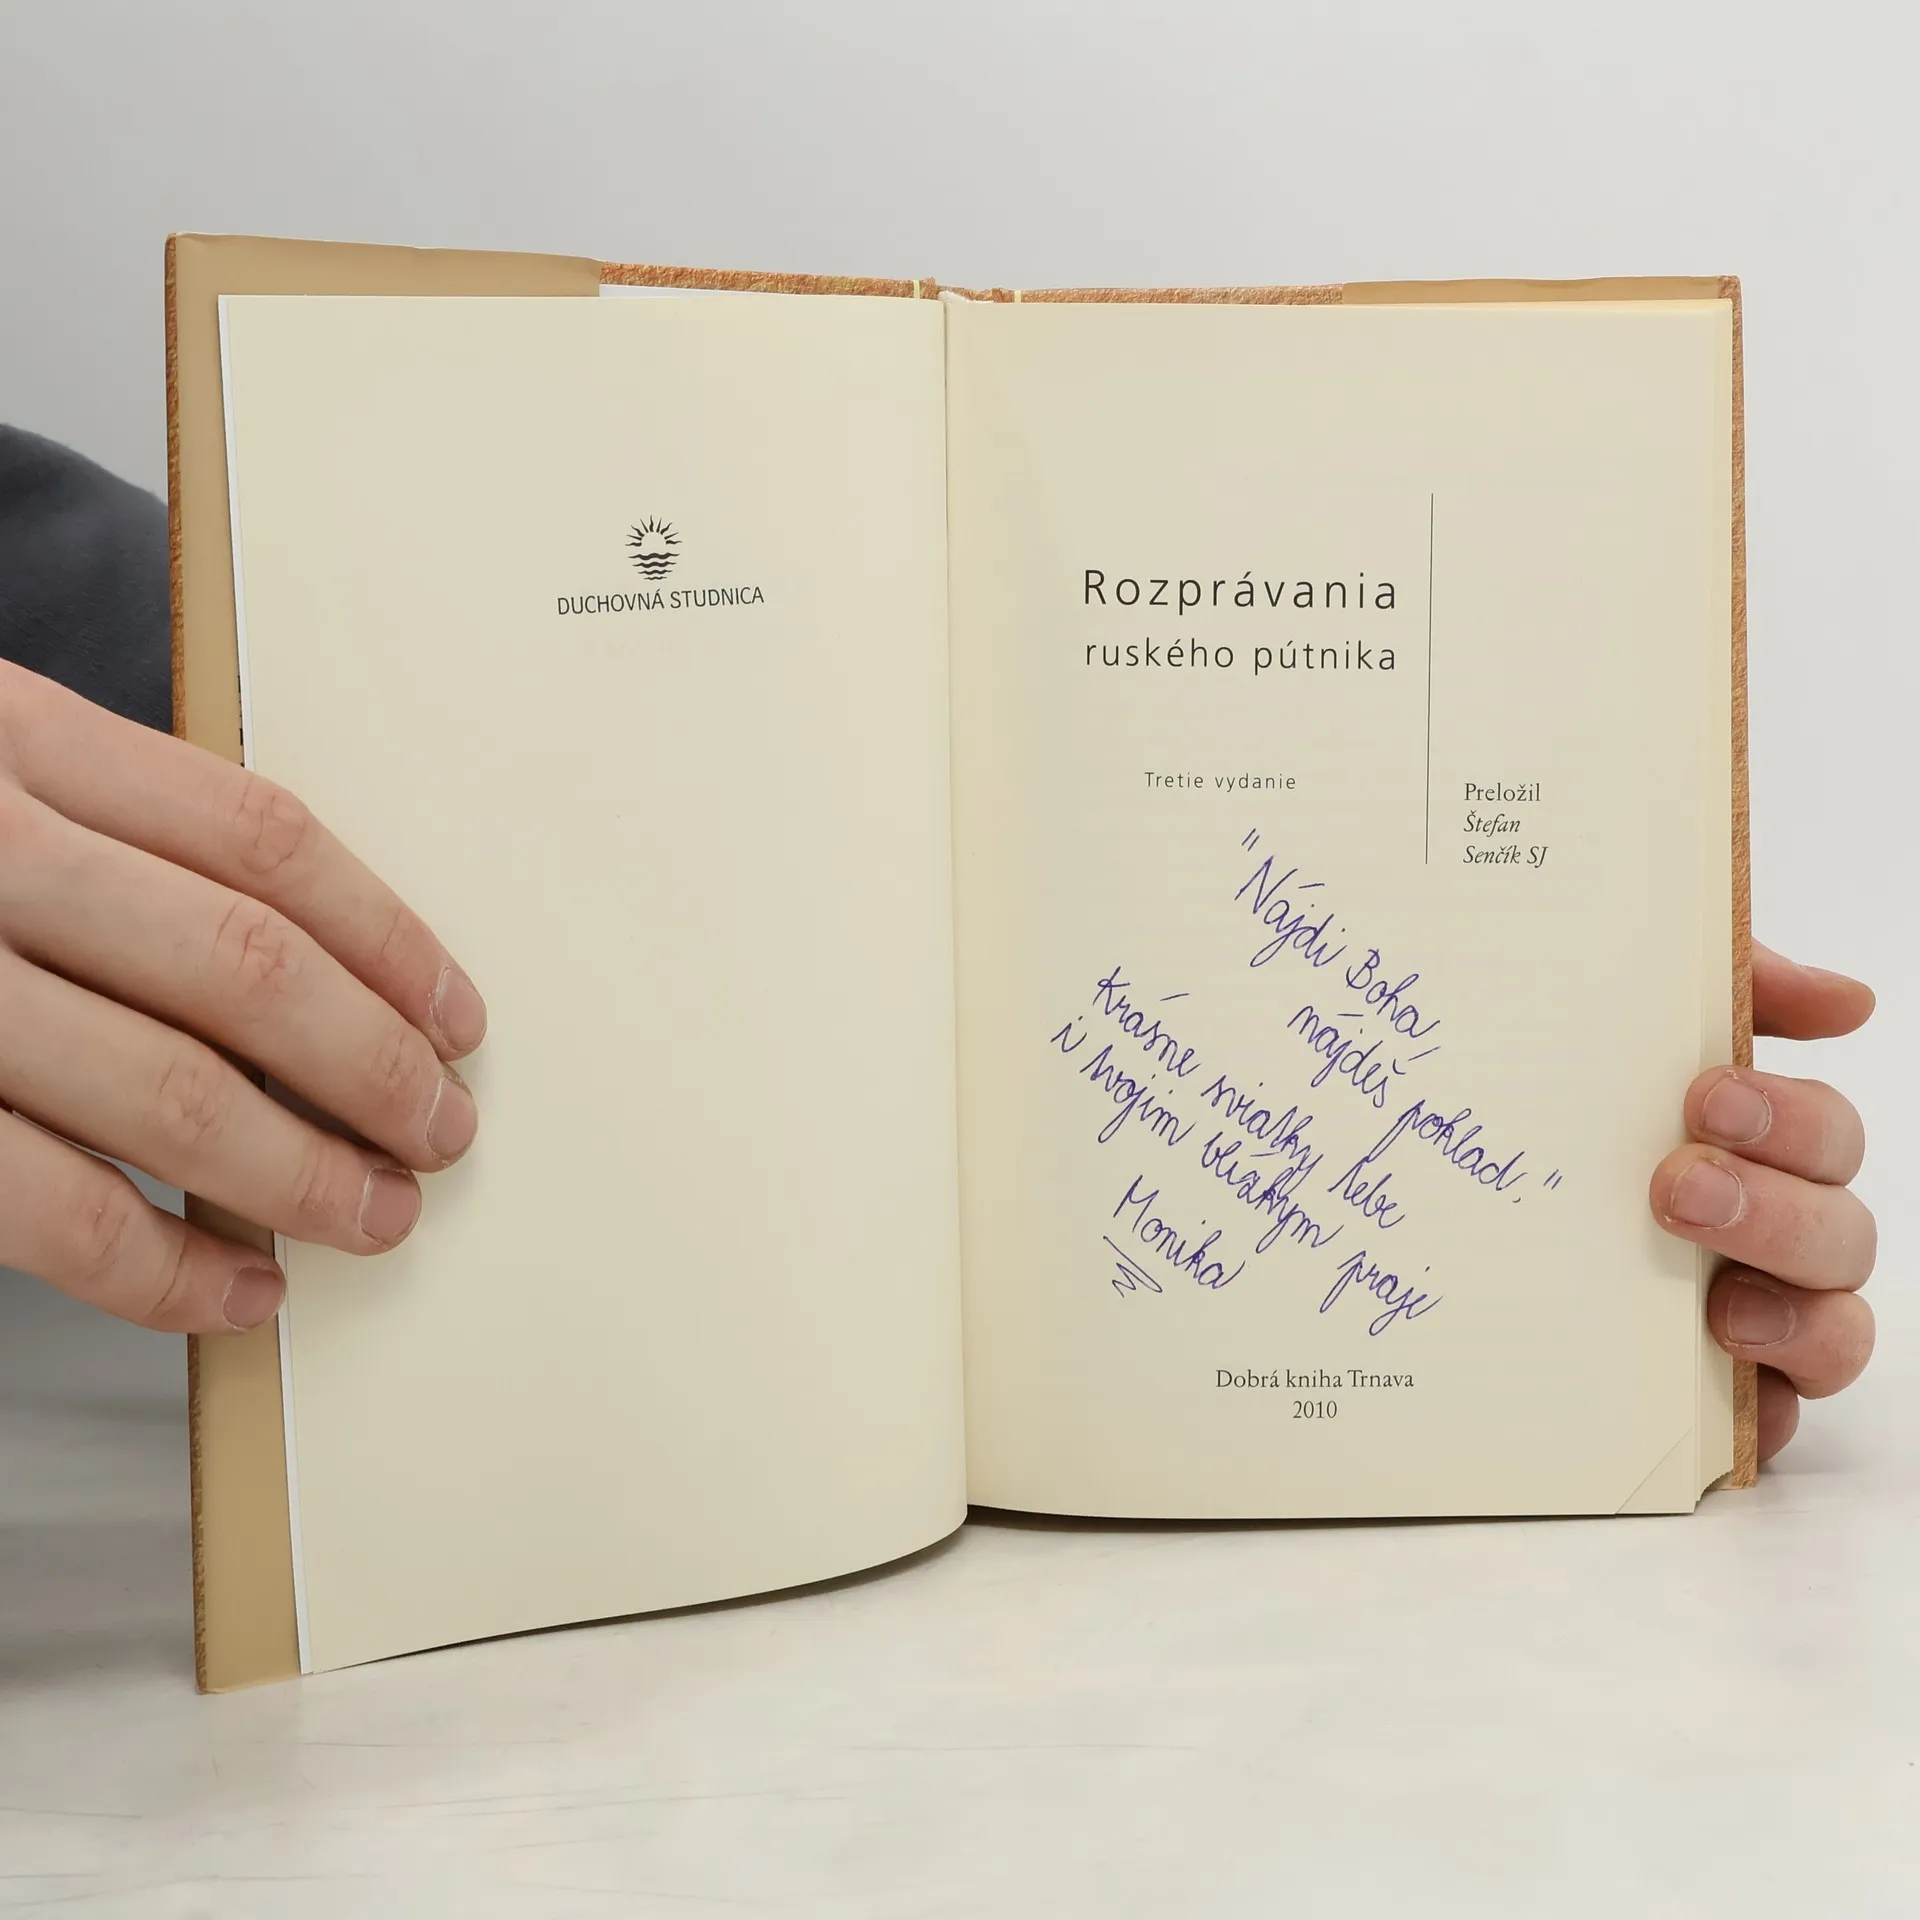 DUCHOVNÁ STUDNICA
Rozprávania
ruského pútnika
Tretie vydanie
Preložil
Štefan
Senčík SJ
"Nájdi Boha,
nájdeš poklad."
Krásne sviatky Tebe
i tvojim blízkym praje
Monika
Dobrá kniha Trnava
2010